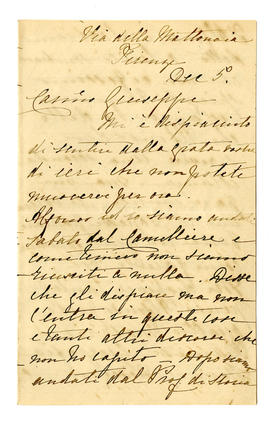 Via della Mattonaia
Firenze
Dec 5.
Carino Giuseppe
Mi è despiaciuto
di sentire dalla grata vostra
di ieri che non potete
muovervi per ora.
Alfonso ed io siamo andati
Sabato dal Camilliere e
come temevo non siamo
riusciti a nulla. Disse
che gli dispiace ma non
c'entra in queste cose
e tanti altri discorsi che
non ho capito — Dopo siamo
andati dal Prof di Storia